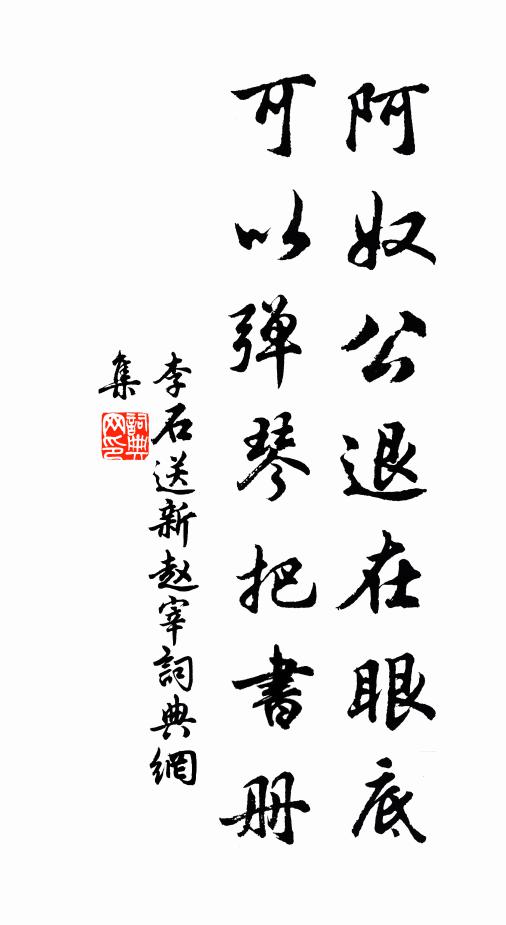 阿奴公退在眼底
可以弹琴把書册
李石送新赵宰詞典網
集
詞典
网印